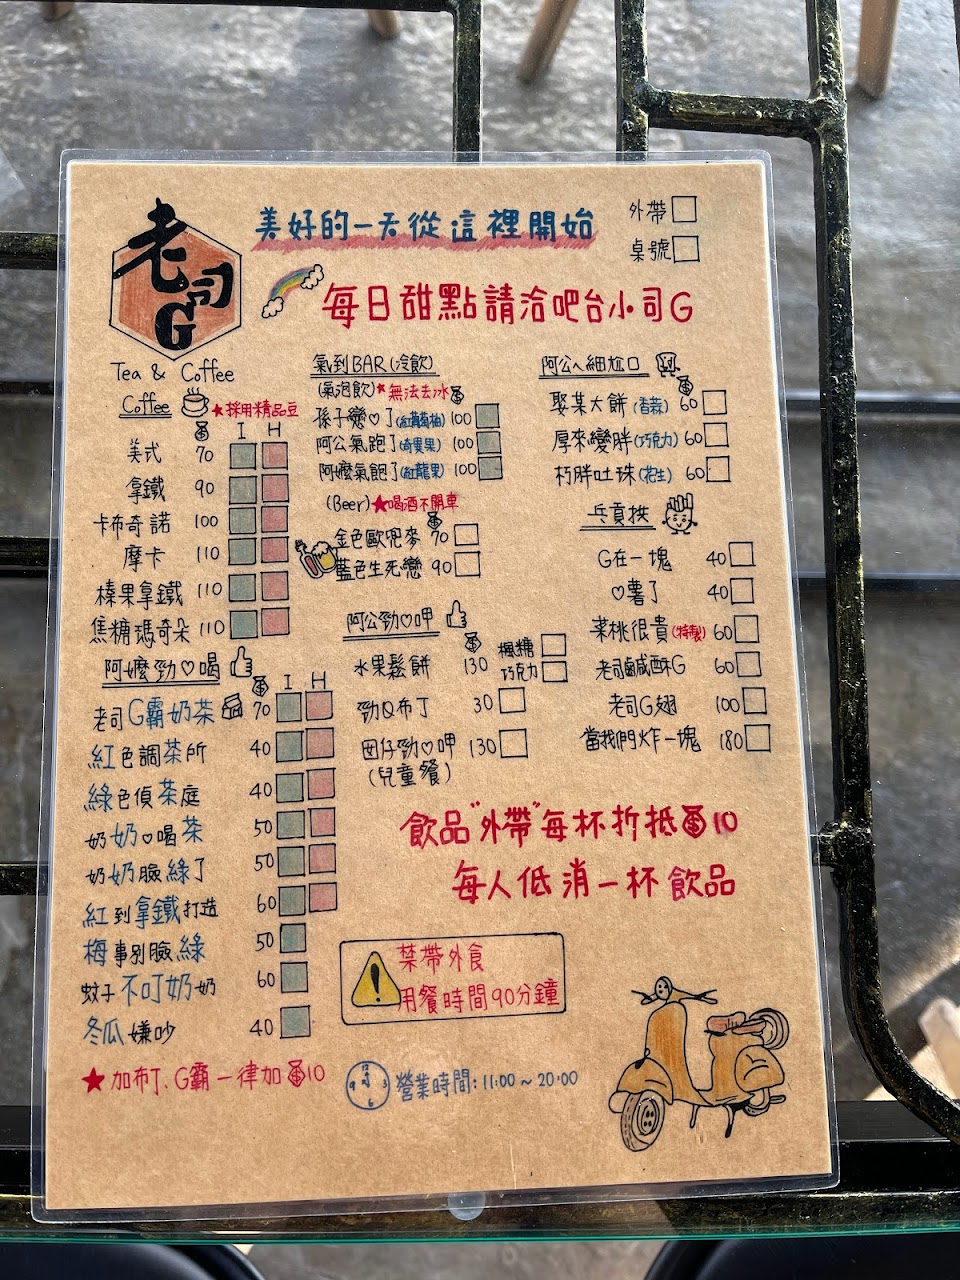 老司G
Tea & Coffee
美好的一天從這裡開始
外帶
桌號
每日甜點請洽吧台小司G
Coffee
★採用精品豆
I H
美式 70
拿鐵 90
卡布奇諾 100
摩卡 110
榛果拿鐵 110
焦糖瑪奇朵 110
阿嬤勁♡喝
I H
老司G霸奶茶 70
紅色調茶所 40
綠色偵茶庭 40
奶奶♡喝茶 50
奶奶臉綠了 50
紅到拿鐵打造 60
梅事別臉綠 50
蚊子不叮奶奶 60
冬瓜嫌吵 40
★加布丁、G霸一律加10
氣到BAR(冷飲)
(氣泡飲)★無法去冰
孫子戀♡了(紅葡萄柚) 100
阿公氣跑了(奇異果) 100
阿嬤氣飽了(紅龍果) 100
(Beer)★喝酒不開車
金色歐兜麥 70
藍色生死戀 90
阿公勁♡呷
水果鬆餅 130 楓糖
巧克力
勁Q布丁 30
囝仔勁♡呷 130
(兒童餐)
阿公ㄟ細尬口
娶某大餅(香蒜) 60
厚來變胖(巧克力) 60
朽胖吐珠(花生) 60
乒貢拱
G在一塊 40
♡薯了 40
菜桃很貴(特製) 60
老司鹹酥G 60
老司G翅 100
當我們炸一塊 180
飲品"外帶"每杯折抵10
每人低消一杯飲品
禁帶外食
用餐時間90分鐘
12 3 6 9
營業時間:11:00~20:00